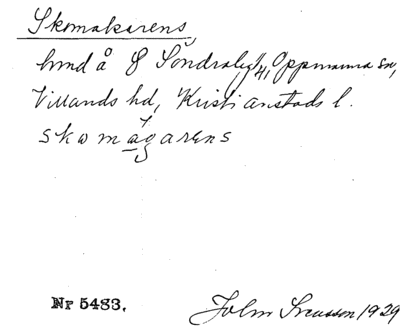 Skomakarens,
hmd å 8 Söndraby 4, Oppmanna sn,
Villands hd, Kristianstads l.
skomagarens
Nr 5483.
John Svensson 1929